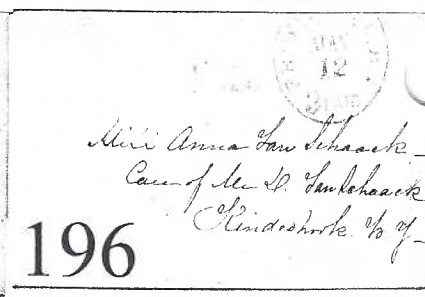 MAY
12
Miss Anna Van Schaack
Care of Mr D. Van Schaack
Kinderhook N Y
196